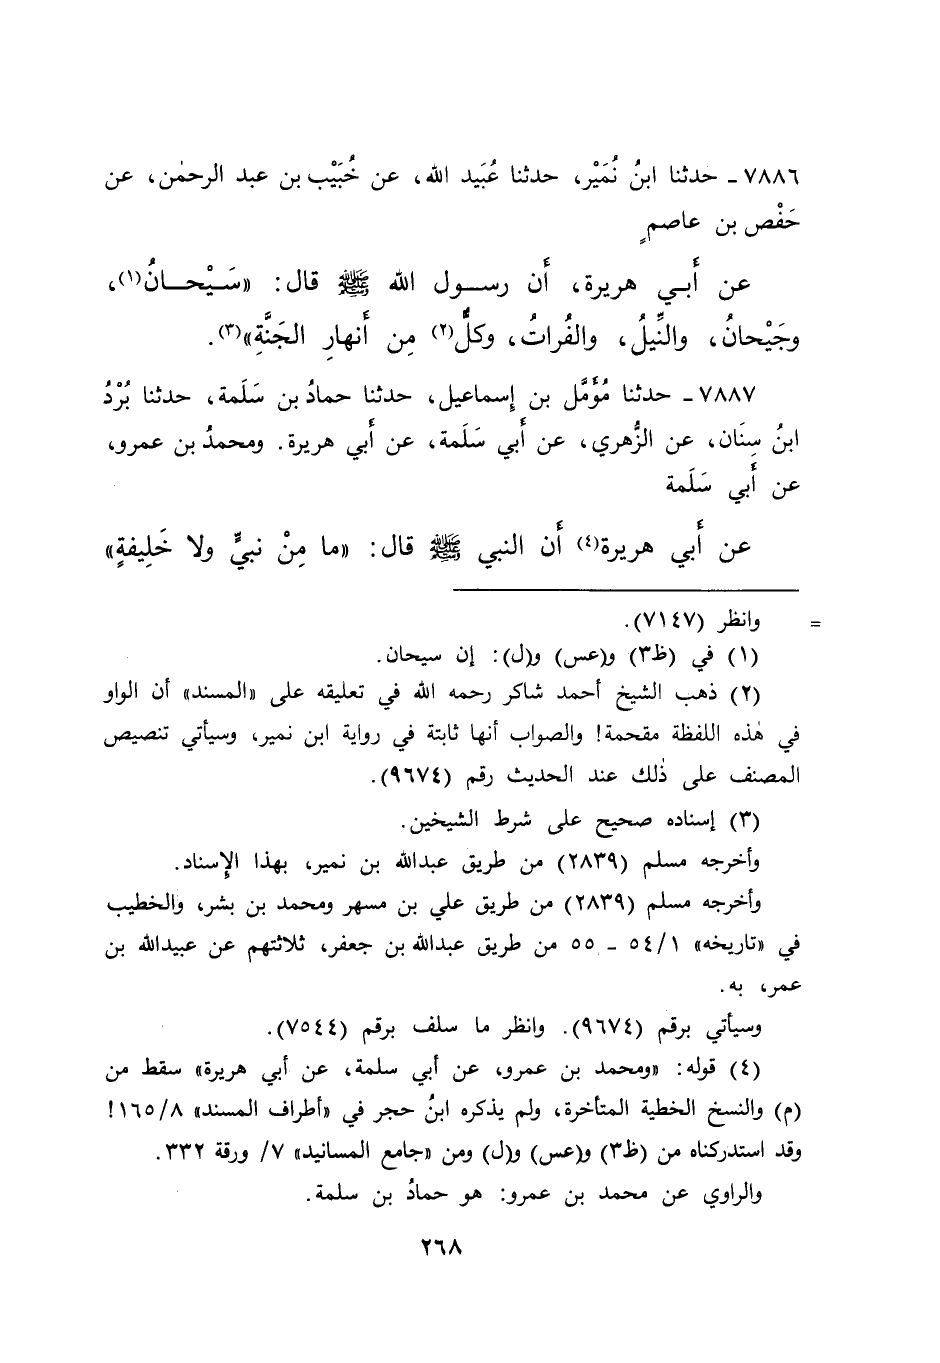 ٧٨٨٦ ـ حدثنا ابنُ نُمَيْر، حدثنا عُبَيد الله، عن خُبَيْب بن عبد الرحمٰن، عن
حَفْص بن عاصمٍ
عن أَبي هريرة، أَن رسول الله ﷺ قال: «سَيْحانُ(١)،
وجَيْحانُ، والنِّيلُ، والفُراتُ، وكلٌّ(٢) مِن أَنهارِ الجَنَّةِ»(٣).
٧٨٨٧ ـ حدثنا مُؤَمَّل بن إِسماعيل، حدثنا حمادُ بن سَلَمة، حدثنا بُرْدُ
ابنُ سِنَان، عن الزُّهري، عن أَبي سَلَمة، عن أَبي هريرة. ومحمدُ بن عمرو،
عن أَبي سَلَمة
عن أَبي هريرة(٤) أَن النبي ﷺ قال: «ما مِنْ نبيٍّ ولا خَلِيفةٍ»
= وانظر (٧١٤٧).
(١) في (ظ٣) و(عس) و(ل): إن سيحان.
(٢) ذهب الشيخ أحمد شاكر رحمه الله في تعليقه على «المسند» أن الواو
في هٰذه اللفظة مقحمة! والصواب أنها ثابتة في رواية ابن نمير، وسيأتي تنصيص
المصنف على ذٰلك عند الحديث رقم (٩٦٧٤).
(٣) إسناده صحيح على شرط الشيخين.
وأخرجه مسلم (٢٨٣٩) من طريق عبدالله بن نمير، بهذا الإِسناد.
وأخرجه مسلم (٢٨٣٩) من طريق علي بن مسهر ومحمد بن بشر، والخطيب
في «تاريخه» ٥٤/١ ـ ٥٥ من طريق عبدالله بن جعفر، ثلاثتهم عن عبيدالله بن
عمر، به.
وسيأتي برقم (٩٦٧٤). وانظر ما سلف برقم (٧٥٤٤).
(٤) قوله: «ومحمد بن عمرو، عن أبي سلمة، عن أبي هريرة» سقط من
(م) والنسخ الخطية المتأخرة، ولم يذكره ابنُ حجر في «أطراف المسند» ١٦٥/٨!
وقد استدركناه من (ظ٣) و(عس) و(ل) ومن «جامع المسانيد» ٧/ ورقة ٣٣٢.
والراوي عن محمد بن عمرو: هو حمادُ بن سلمة.
٢٦٨